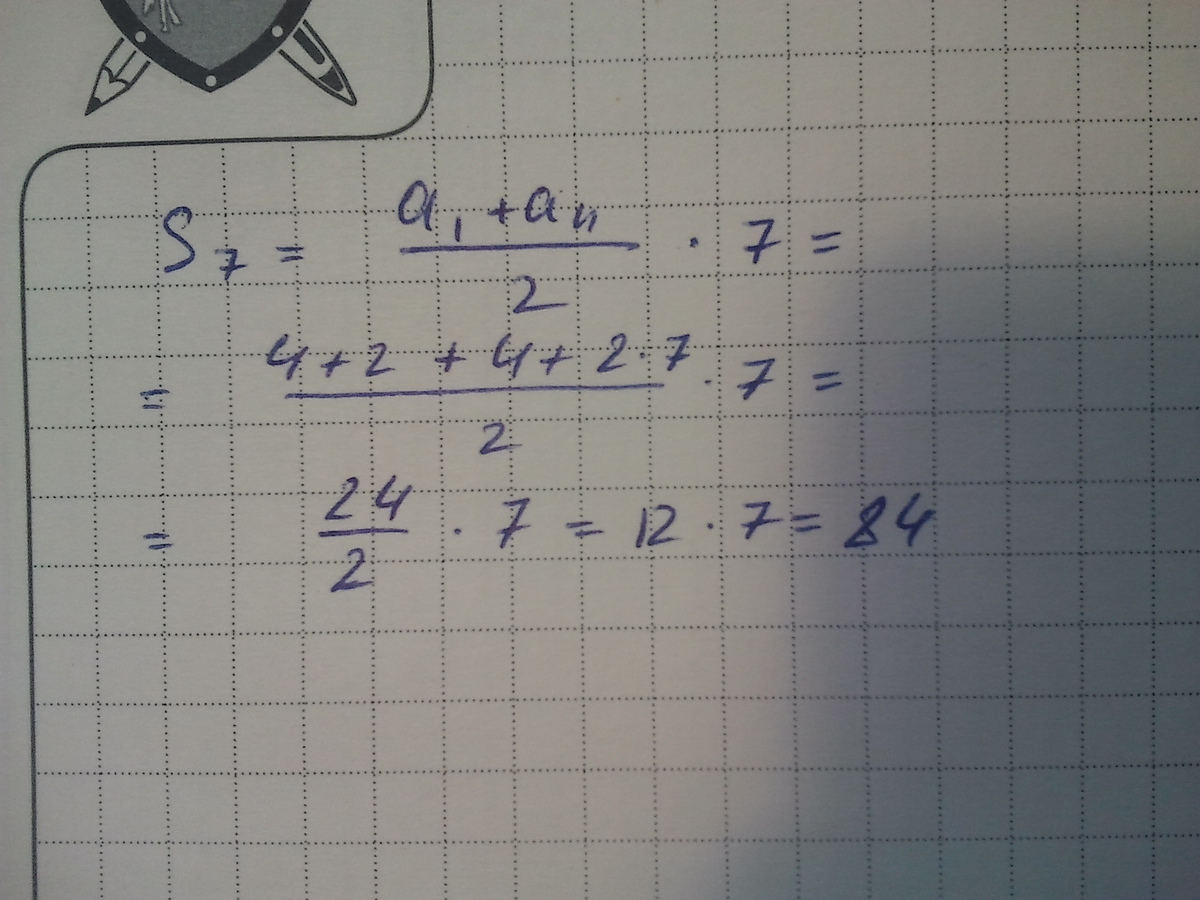 S₇ = (a₁ + aₙ)/2 · 7 =
= (4 + 2 + 4 + 2 · 7)/2 · 7 =
= 24/2 · 7 = 12 · 7 = 84